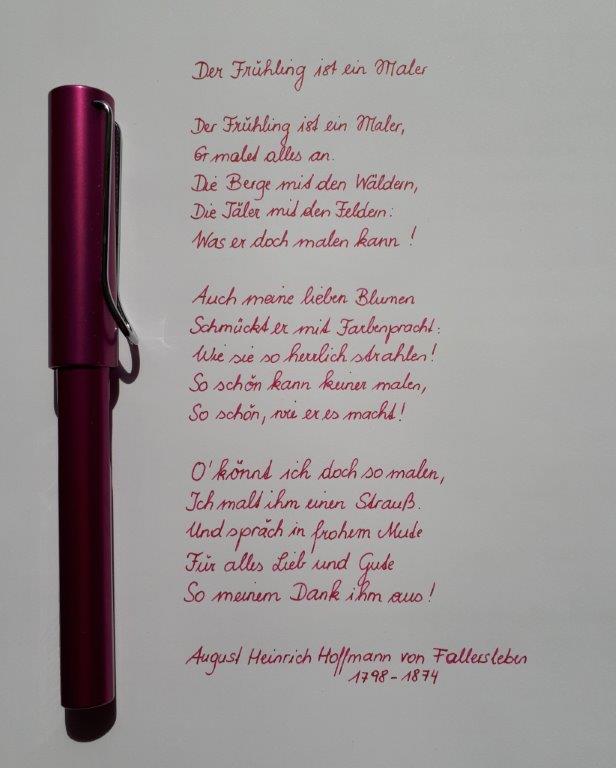 Der Frühling ist ein Maler
Der Frühling ist ein Maler,
Er malet alles an.
Die Berge mit den Wäldern,
Die Täler mit den Feldern:
Was er doch malen kann!
Auch meine lieben Blumen
Schmückt er mit Farbenpracht:
Wie sie so herrlich strahlen!
So schön kann keiner malen,
So schön, wie er es macht!
O' könnt ich doch so malen,
Ich malt ihm einen Strauß.
Und spräch in frohem Mute
Für alles Lieb und Gute
So meinem Dank ihm aus!
August Heinrich Hoffmann von Fallersleben
1798-1874